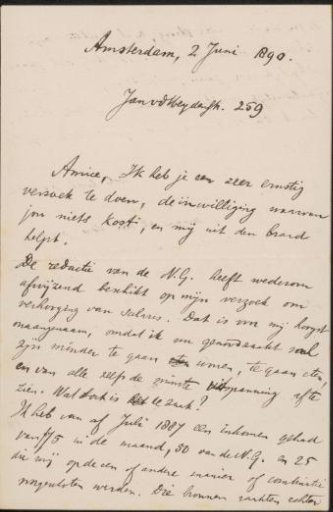 Amsterdam, 2 Juni 1890.
Jan v d Heydenstr. 259
Amice, Ik heb je een zeer ernstig
verzoek te doen, de inwilliging waarvan
jou niets kost, en mij uit den brand
helpt.
De redactie van de N.G. heeft wederom
afwijzend beschikt op mijn verzoek om
verhooging van salaris. Dat is voor mij hoogst
onaangenaam, omdat ik nu genoodzaakt zal
zijn minder te gaan wonen, te gaan eten,
en van alle zelfs de minste uitspanning af te
zien. Wat doet is de zaak?
Ik heb van af Juli 1887 een inkomen gehad
van f 75 in de maand, 50 van de N.G. en 25
die mij op de een of andere manier
werden. Die bronnen echter